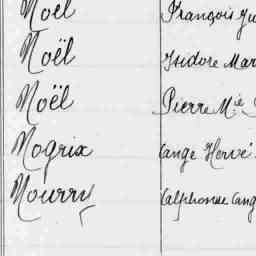 Noël François
Noël Isidore
Noël Pierre M.ie
Nogrix ange Hervé
Nourry alphonse